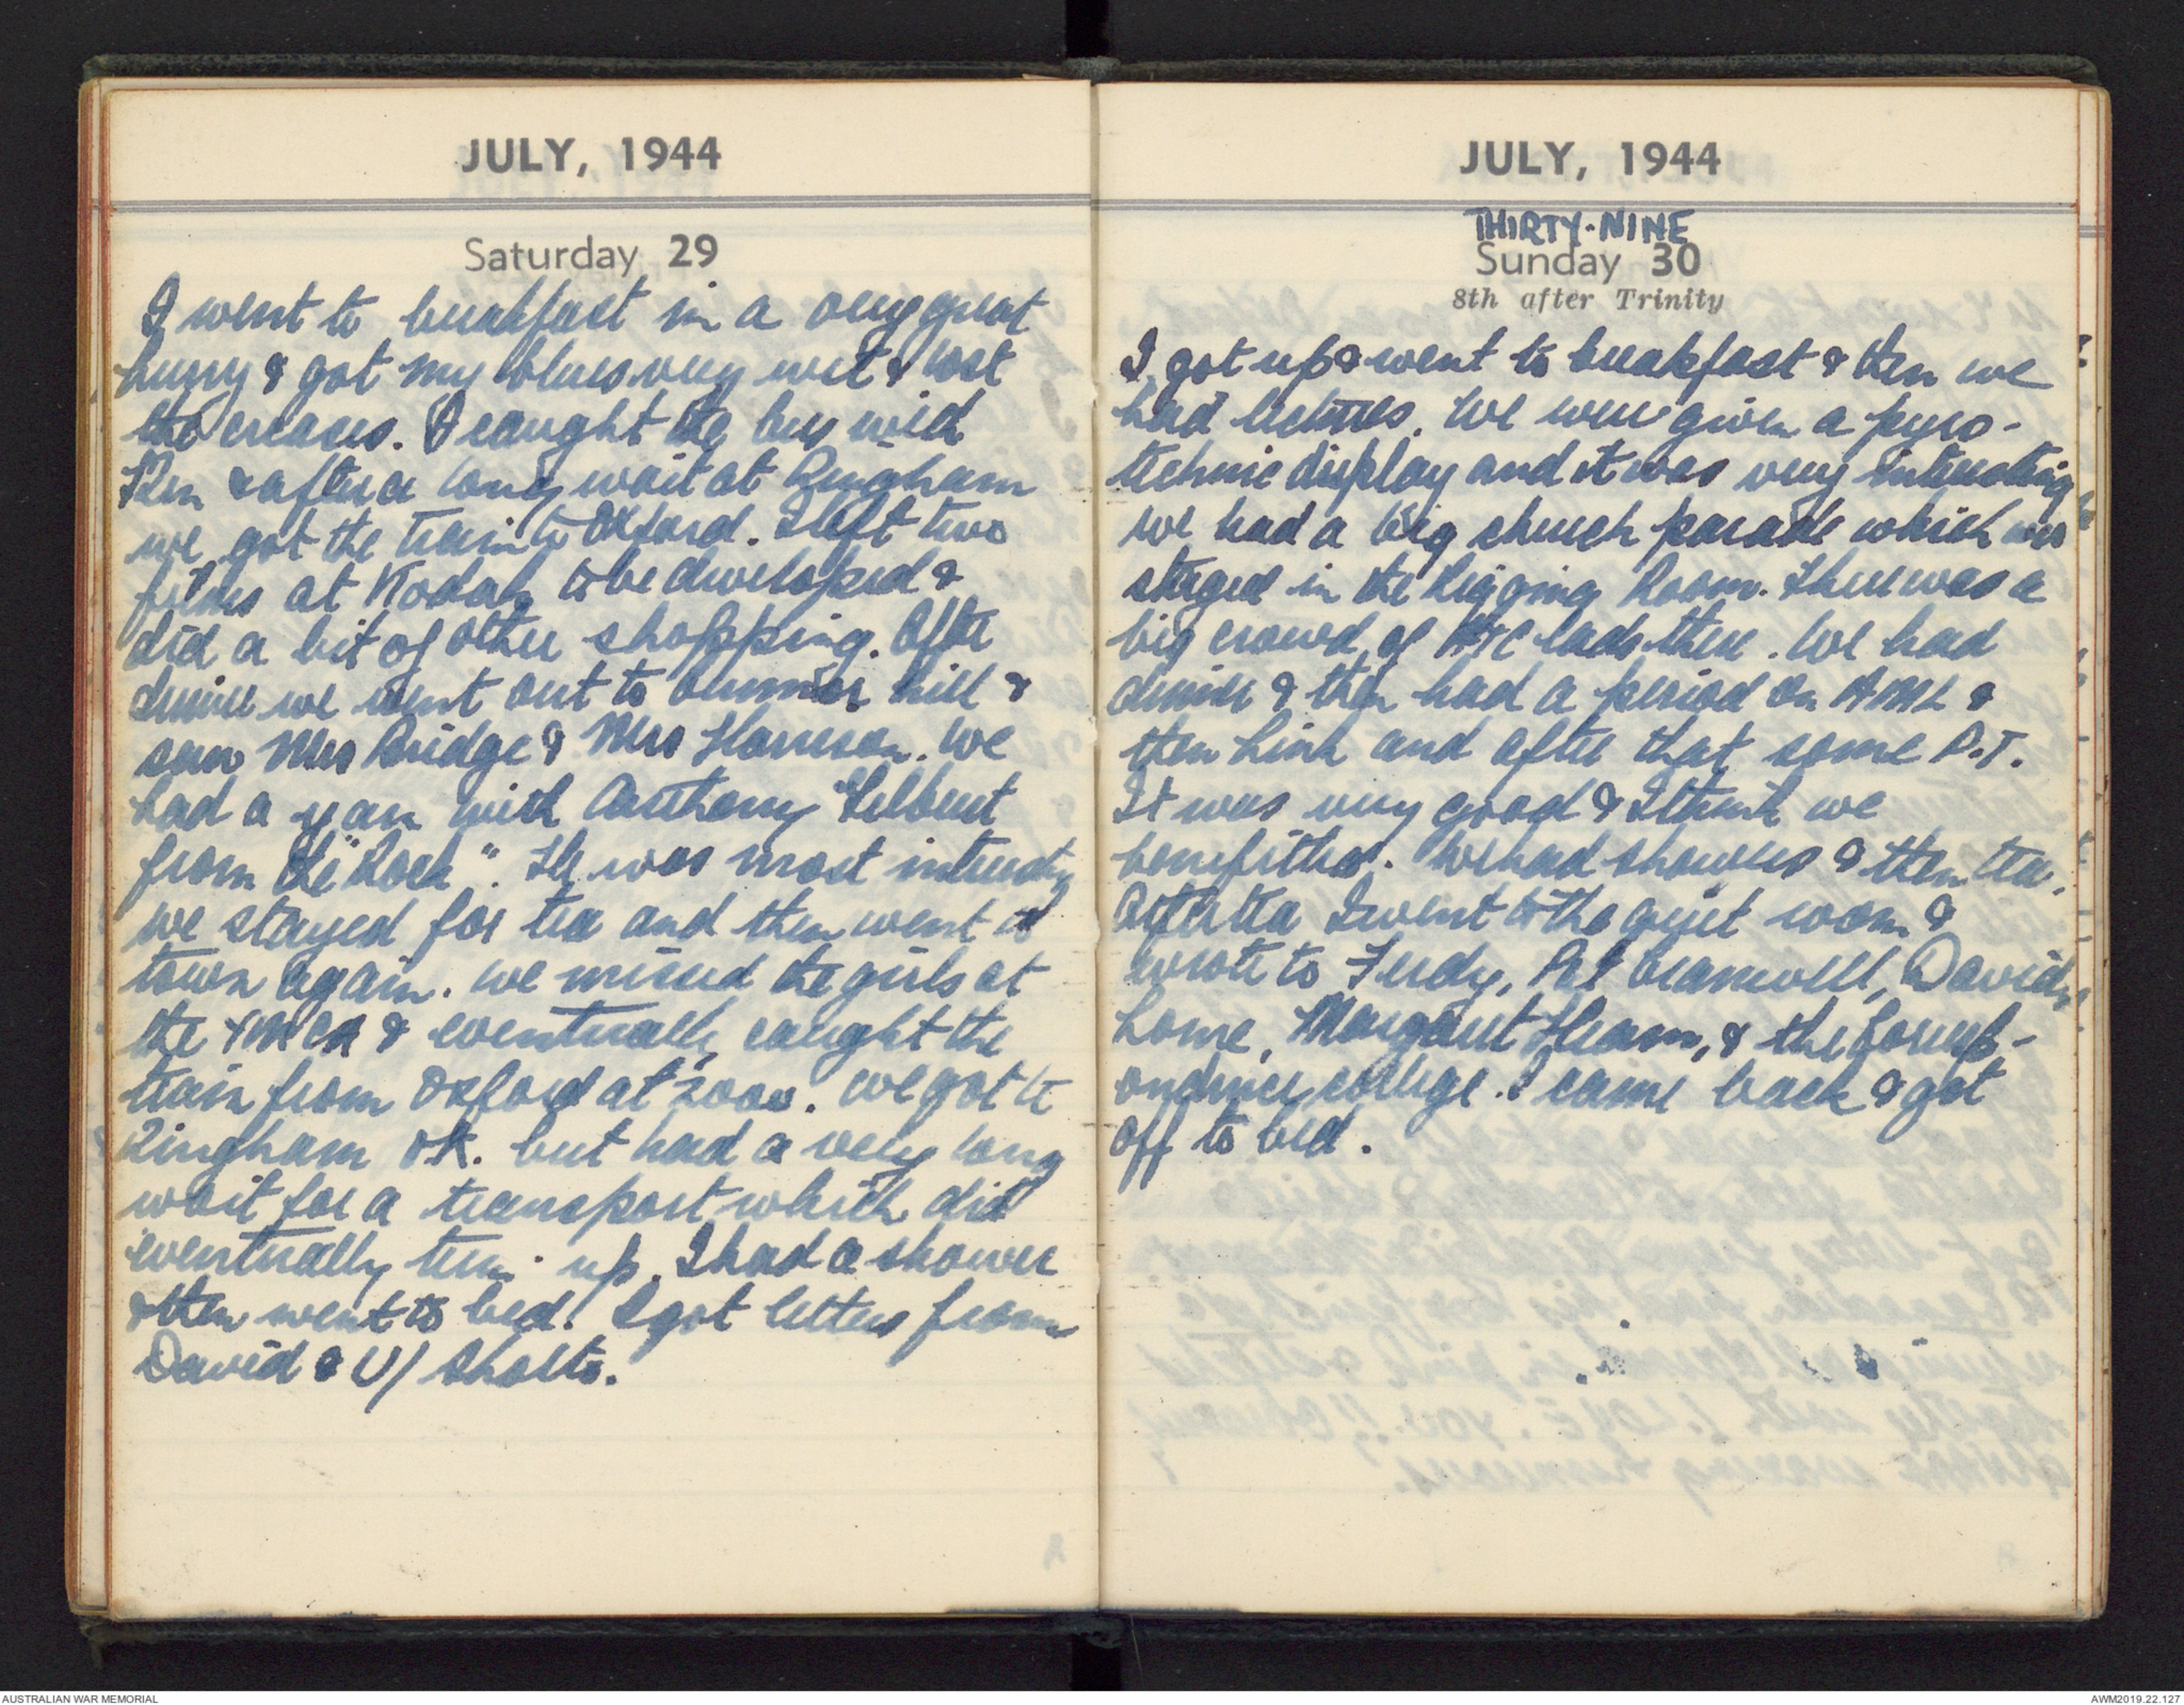 JULY, 1944
Saturday 29
I went to breakfast in a very great
hurry & got my blues very wet & lost
the creases. I caught the bus with
Ken & after a long wait at Kingham
we got the train to Oxford. I left two
films at Kodak to be developed &
did a bit of other shopping. After
dinner we went out to Cumnor hill &
saw Mrs Bridge & Mrs Harrison. We
had a yarn with Anthony Gilbert
from the "Rock". He was most interesting
we stayed for tea and then went to
town again. We missed the girls at
the YMCA & eventually caught the
train from Oxford at 2000. We got to
Kingham OK. but had a very long
wait for a transport which did
eventually turn up. I had a shower
& then went to bed. I got letters from
David & U/ Sholto.
JULY, 1944
THIRTY-NINE
Sunday 30
8th after Trinity
I got up & went to breakfast & then we
had lectures. We were given a pyro-
technic display and it was very interesting
we had a big church parade which was
staged in the Rigging Room. There was a
big crowd of ATC lads there. We had
dinner & then had a period on AML &
then Link and after that some P.T.
It was very good & I think we
benefitted. We had showers & then tea.
After tea I went to the quiet room &
wrote to Ferdy, Pat Bramwell, David,
home, Margaret Hearn, & the Corresp-
ondence college. I came back & got
off to bed.
AUSTRALIAN WAR MEMORIAL
AWM2019.22.127